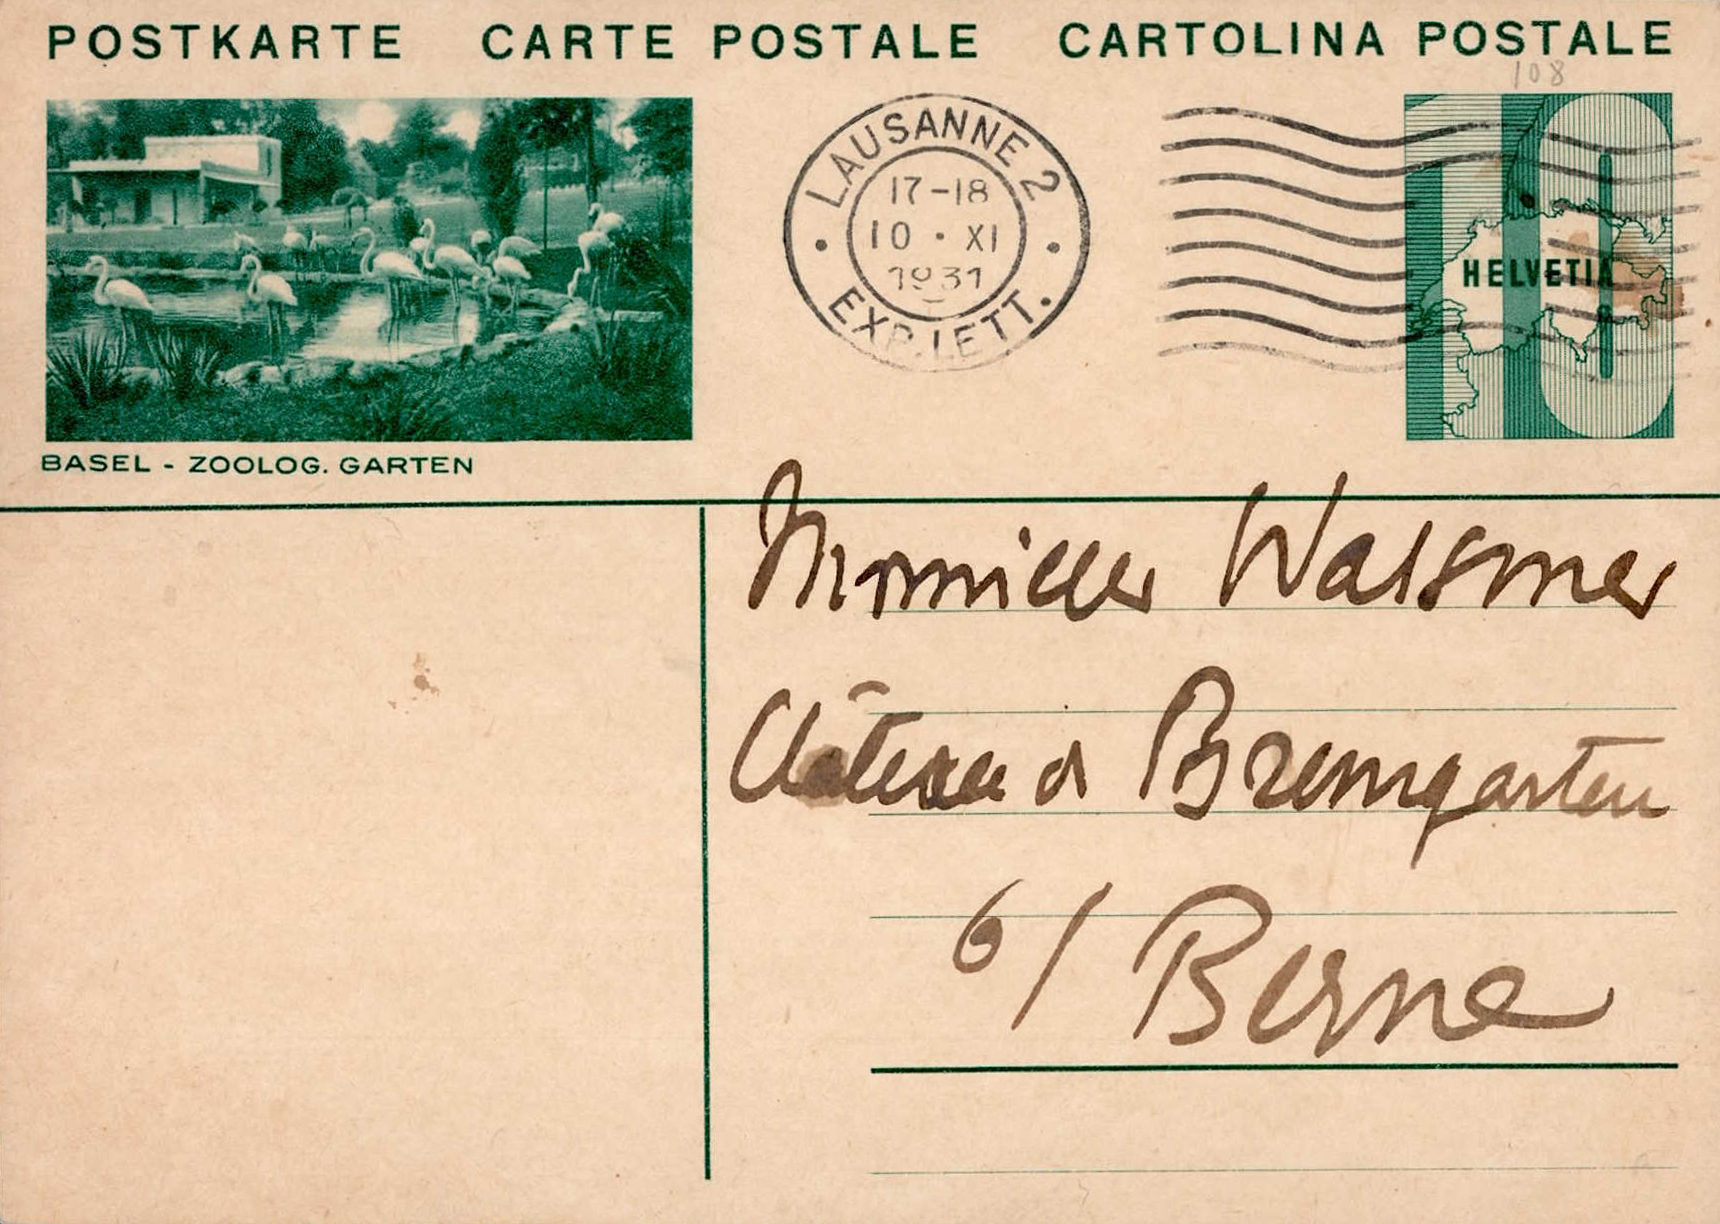 POSTKARTE CARTE POSTALE CARTOLINA POSTALE
108
LAUSANNE 2
17-18
10 · XI
1931
EXP. LETT.
10
HELVETIA
BASEL - ZOOLOG. GARTEN
Wassmer
Château de Bremgarten
b/ Berne